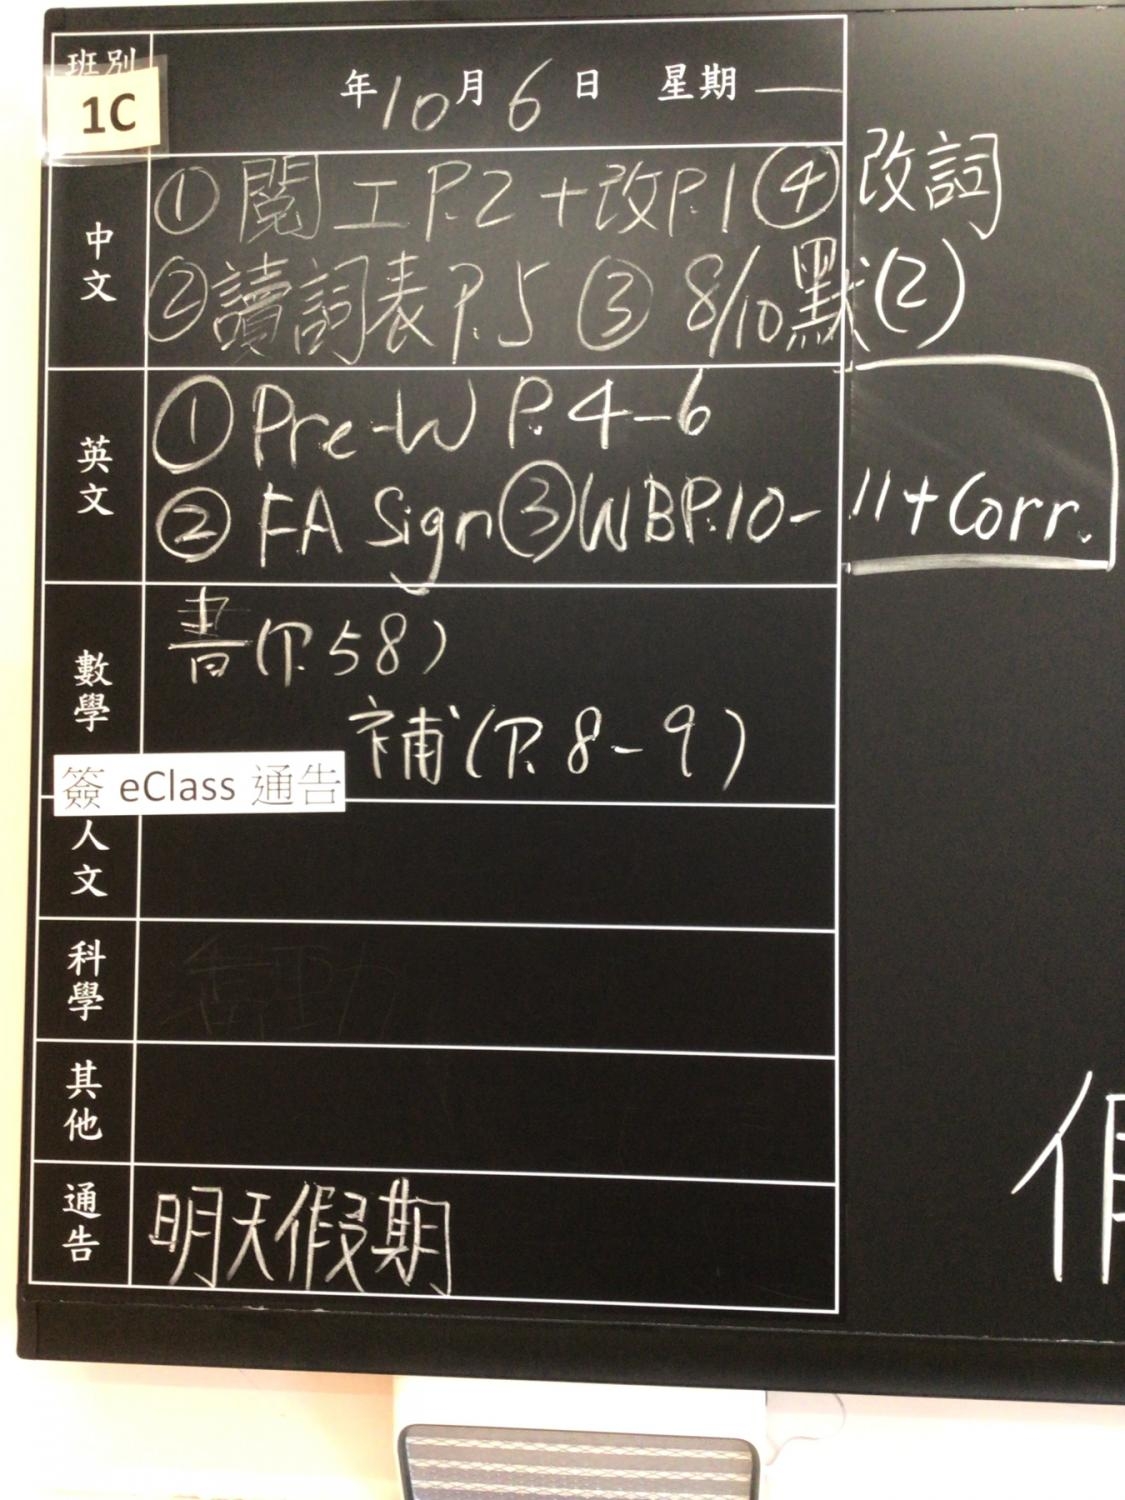 班別
1C
年10月6日 星期一
中文
①閱工P.2+改P.1④改詞
②讀詞表P.5 ③8/10默(2)
英文
①Pre-W P.4-6
②F.A Sign③WBP.10-11+Corr.
數學
書(P.58)
補(P.8-9)
簽 eClass 通告
人文
科學
其他
通告
明天假期